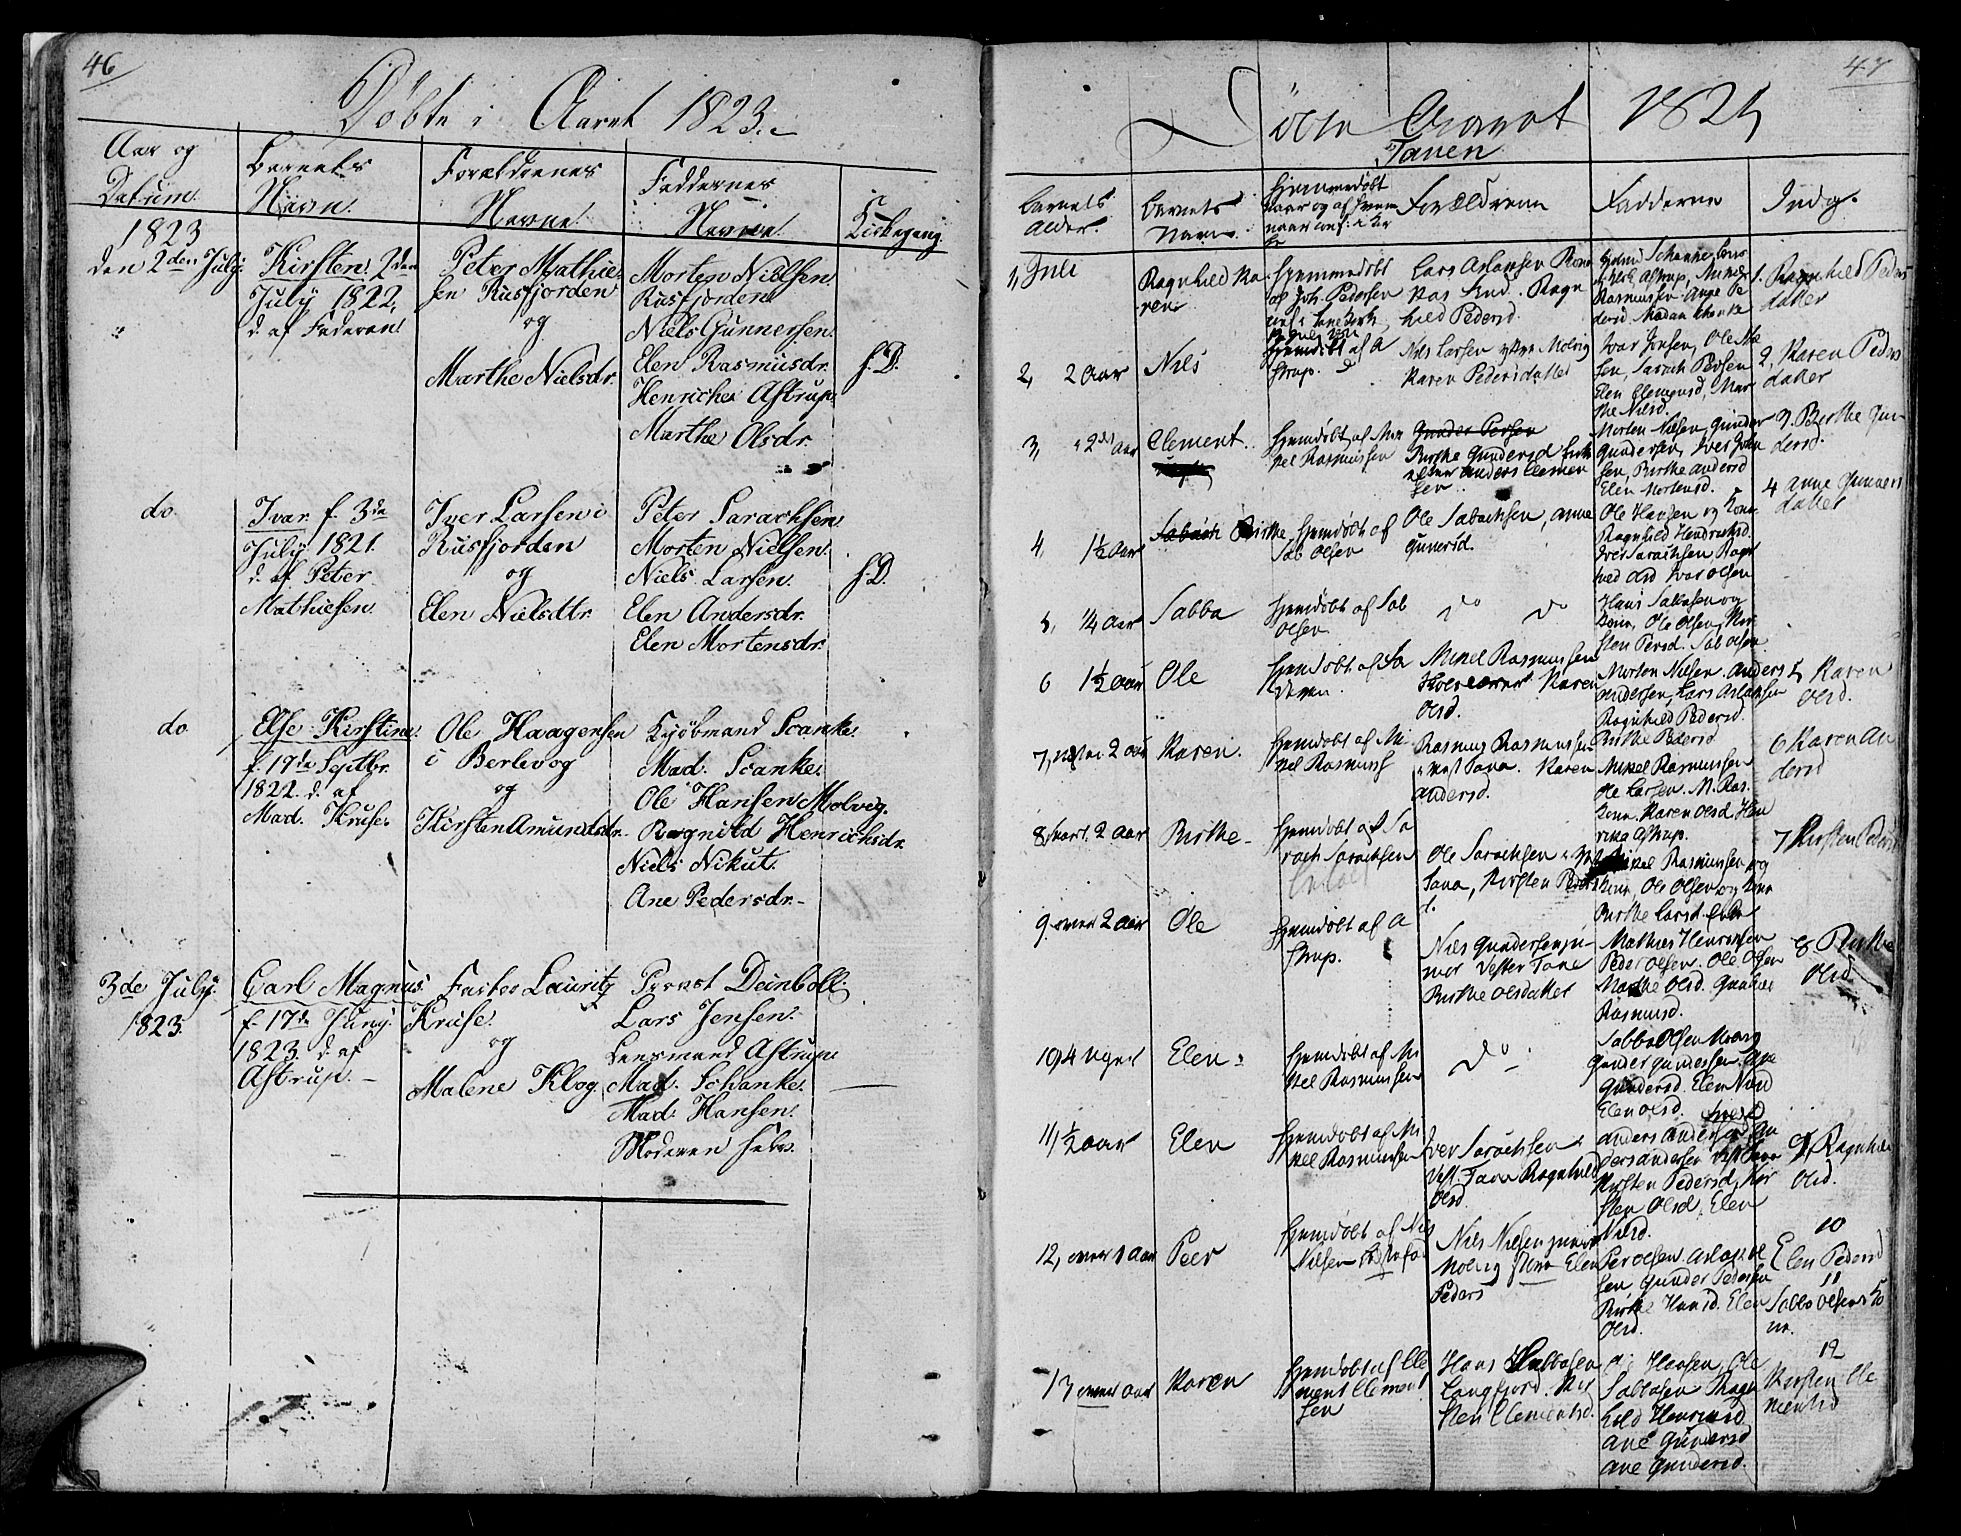 46
Døbte i Aaret 1823.
Aar og
Datum.
Barnets
Navn.
Forældrenes
Navne.
Faddernes
Navne.
Kirkegang.
1823
den 2den July.
Kirsten. 2den
July 1822,
d. af Faderen
Peter Mathie-
sen Rusfjorden
og
Marthe Nielsdr.
Morten Nielsen.
Rusfjorden
Niels Gunnersen.
Elen Rasmusdr.
Henriche Astrup.
Marthe Olsdr.
f. D.
do
Ivar f. 3de
July 1821.
d. af Peter
Mathiesen.
Iver Larsen i
Rusfjorden
og
Elen Nielsdtr.
Peter Sarachsen.
Morten Nielsen.
Niels Larsen.
Elen Andersdr.
Elen Mortensdr.
f. D.
do
Else Kirstine.
f. 19de Septbr.
1822. d. af
Mad. Kruse.
Ole Haagensen
i Berlevog
og
Kirsten Amundsdr.
Kjøbmand Scanke.
Mad. Scanke.
Ole Hansen Molvig.
Ragnild Henrichsdr.
Niels Nikut.
Ane Pedersdr.
3de July.
1823.
Carl Magnus
f. 17de Juny.
1823. d. af
Astrup.
Factor Lauritz
Kruse.
og
Malene Klog.
Provst Deinboll.
Lars Jensen.
Lensmand Astrup.
Mad. Schanke.
Mad. Hansen.
Moderen selv.
47
Døbte Aaret 1824
Tanen
Barnets
Alder.
Barnets
Navn.
Hjemmedøbt
naar og af hvem
Forældrene
Fadderne
Indg.
1, Juli
Ragnhild Ka-
ren
Hjemmedøbt
af Joh. Pedersen
Lars Aslaksen
Ragn
hild Pedersd.
1. Ragnhild Peders
datter
2, 2 Aar
Nils
Hjemdøbt af A
strup.
Nils Larsen
Karen Pedersdatter
Ivar Jonsen, Ole
Elen Clemensd, Mar
the Nilsd.
2, Karen Peders
datter
3, 2det Aar
Clement.
Hjemdøbt af Mi
kel Rasmussen
Gunder Persen
Birthe Gundersd
Anders Clemen
sen
Morten Nilsen, Gunder
Gundersen, Iver Joha
sen, Birthe Andersd
Elen Mortensd.
3. Birthe Gun-
dersd.
4, 1½ Aar
Sabach Birthe,
Hjemdøbt af
Sab Olsen
Ole Sabachsen, Anne
Gunersd.
Ole Hansen og Kone
Ragnhild Hendriksd.
Iver Sarachsen Ragn
hild Ivar Olsen
4 Anne Gunners
datter
5, ¼ Aar
Sabba
Hjemdøbt af Sab
Olsen
do do
Hans Sabbasen og
Kone, Ole Olsen, Kir
sten Persd. Sab Olsen
6 1½ Aar
Ole
Hjemdøbt af Fa
deren
Mikel Rasmussen
Karen
Olsd.
Morten Nilsen. Anders
Andersen, Lars Aslaksen
Ragnhild Pedersd.
5 Karen
Olsd.
7, næsten 2 Aar
Karen.
Hjemdøbt af Mi-
kel Rasmuss
Rasmus Rasmussen
Vest Tana. Karen
Andersd.
Birthe Pedersd
Mikel Rasmussen
Ole Larsen. M. Ras.
Kone. Karen Olsd. Hen
rika Astrup.
6 Karen An
dersd
8, snart 2 Aar
Birthe
Hjemdøbt af Sa
rach Sarachsen
Ole Sarachsen
Tana, Kirsten Peders
d.
Mikel Rasmussen og
Kone, Ole Olsen og Kone
Birthe Larsd.
7 Kirsten Pedersd
9. over 2 Aar
Ole
Hjemdøbt af A
strup.
Nils Gundersen ju-
nior Vester Tane
Birthe Olsdatter
Mathies Henriksen
Peder Olsen. Ole Olsen
Marthe Olsd. Gunhil
Rasmusd.
8 Birthe
Olsd.
10, 4 Uger
Elen
Hjemdøbt af Mi
kel Rasmussen
do
Sabba Olsen
Gunder Gundersen. Ane
Gundersd. Elen
Elen Olsd.
11, ½ Aar
Elen
Hjemdøbt af Mi
kel Rasmussen
Iver Sarachsen
Vest. Tane Ragnhild
Olsd.
Anders Andersen
Kirsten Pedersd, Kir
sten Olsd. Elen
Nilsd.
9 Ragnhild
Olsd.
12, over 1 Aar
Peer
Hjemdøbt af Nils
Nilsen
Nils Nilsen junior
Molvig Elen
Peders
Per Olsen. Aslak Nil
sen, Gunder Pedersen
Birthe Hansd. Elen
Olsd.
10
Elen Pedersd
11
Sabba Olsens Ko
ne.
13 over Aar
Karen
Hjemdøbt af Cle
ment Clement
sen
Hans Sabbasen
Langfjord. Kir
sten Clementsd.
Hansen, Ole
Sabbasen Ragn
hild Henriksd
Ane Gundersd
Ane Gundersd.
12
Kirsten Cle
mentsd